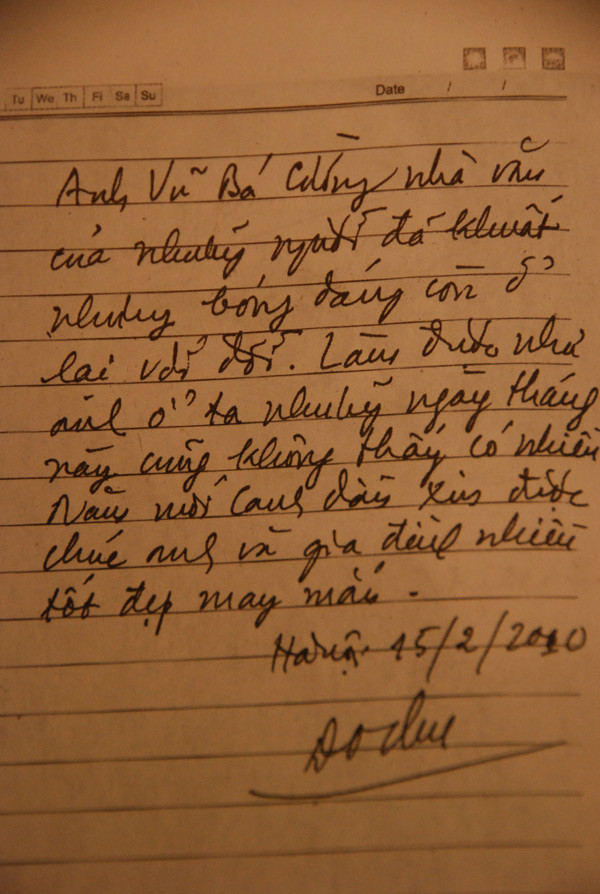 Tu We Th Fi Sa Su
Date / /
Anh Vũ Bá Cường nhà văn
của những người đã khuất
nhưng bóng dáng còn ở
lại với đời. Làm được như
anh ở ta những ngày tháng
này cũng không thấy có nhiều
Năm mới Canh dần xin được
chúc anh và gia đình nhiều
tốt đẹp may mắn.
Hà Nội 15/2/2010
Đỗ Chu